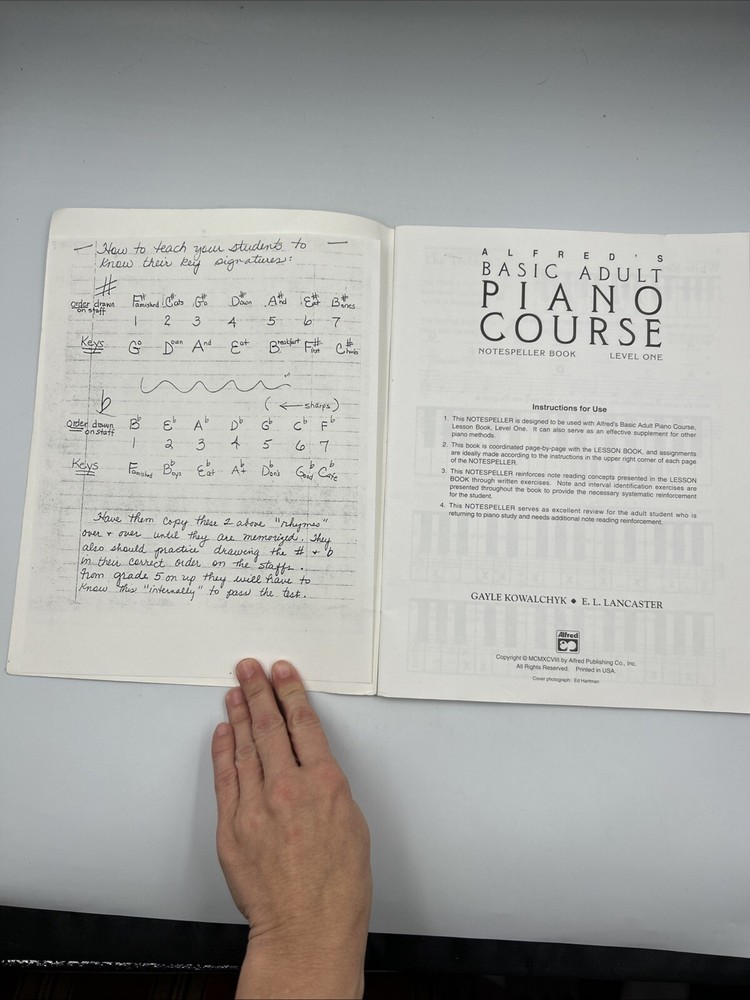 How to teach your students to
know their key signatures:
#
order drawn on staff F#amished C#ats G#o D#own A#nd E#at B#ones
1 2 3 4 5 6 7
Keys Go Down And Eat Breakfast F#irst C#hubs
(← sharps)
b
Order drawn on staff Bb Eb Ab Db Gb Cb Fb
1 2 3 4 5 6 7
Keys Famished Bboys Ebat At Dbon's Gbood Cbafe
Have them copy these 2 above "rhymes"
over + over until they are memorized. They
also should practice drawing the # + b
in their correct order on the staffs.
From grade 5 on up they will have to
know this "internally" to pass the test.
ALFRED'S
BASIC ADULT
PIANO
COURSE
NOTESPELLER BOOK LEVEL ONE
Instructions for Use
1. This NOTESPELLER is designed to be used with Alfred's Basic Adult Piano Course,
Lesson Book, Level One. It can also serve as an effective supplement for other
piano methods.
2. This book is coordinated page-by-page with the LESSON BOOK, and assignments
are ideally made according to the instructions in the upper right corner of each page
of the NOTESPELLER.
3. This NOTESPELLER reinforces note reading concepts presented in the LESSON
BOOK through written exercises. Note and interval identification exercises are
presented throughout the book to provide the necessary systematic reinforcement
for the student.
4. This NOTESPELLER serves as excellent review for the adult student who is
returning to piano study and needs additional note reading reinforcement.
GAYLE KOWALCHYK ● E. L. LANCASTER
Alfred
Copyright © MCMXCVIII by Alfred Publishing Co., Inc.
All Rights Reserved. Printed in USA.
Cover photograph: Ed Hartman